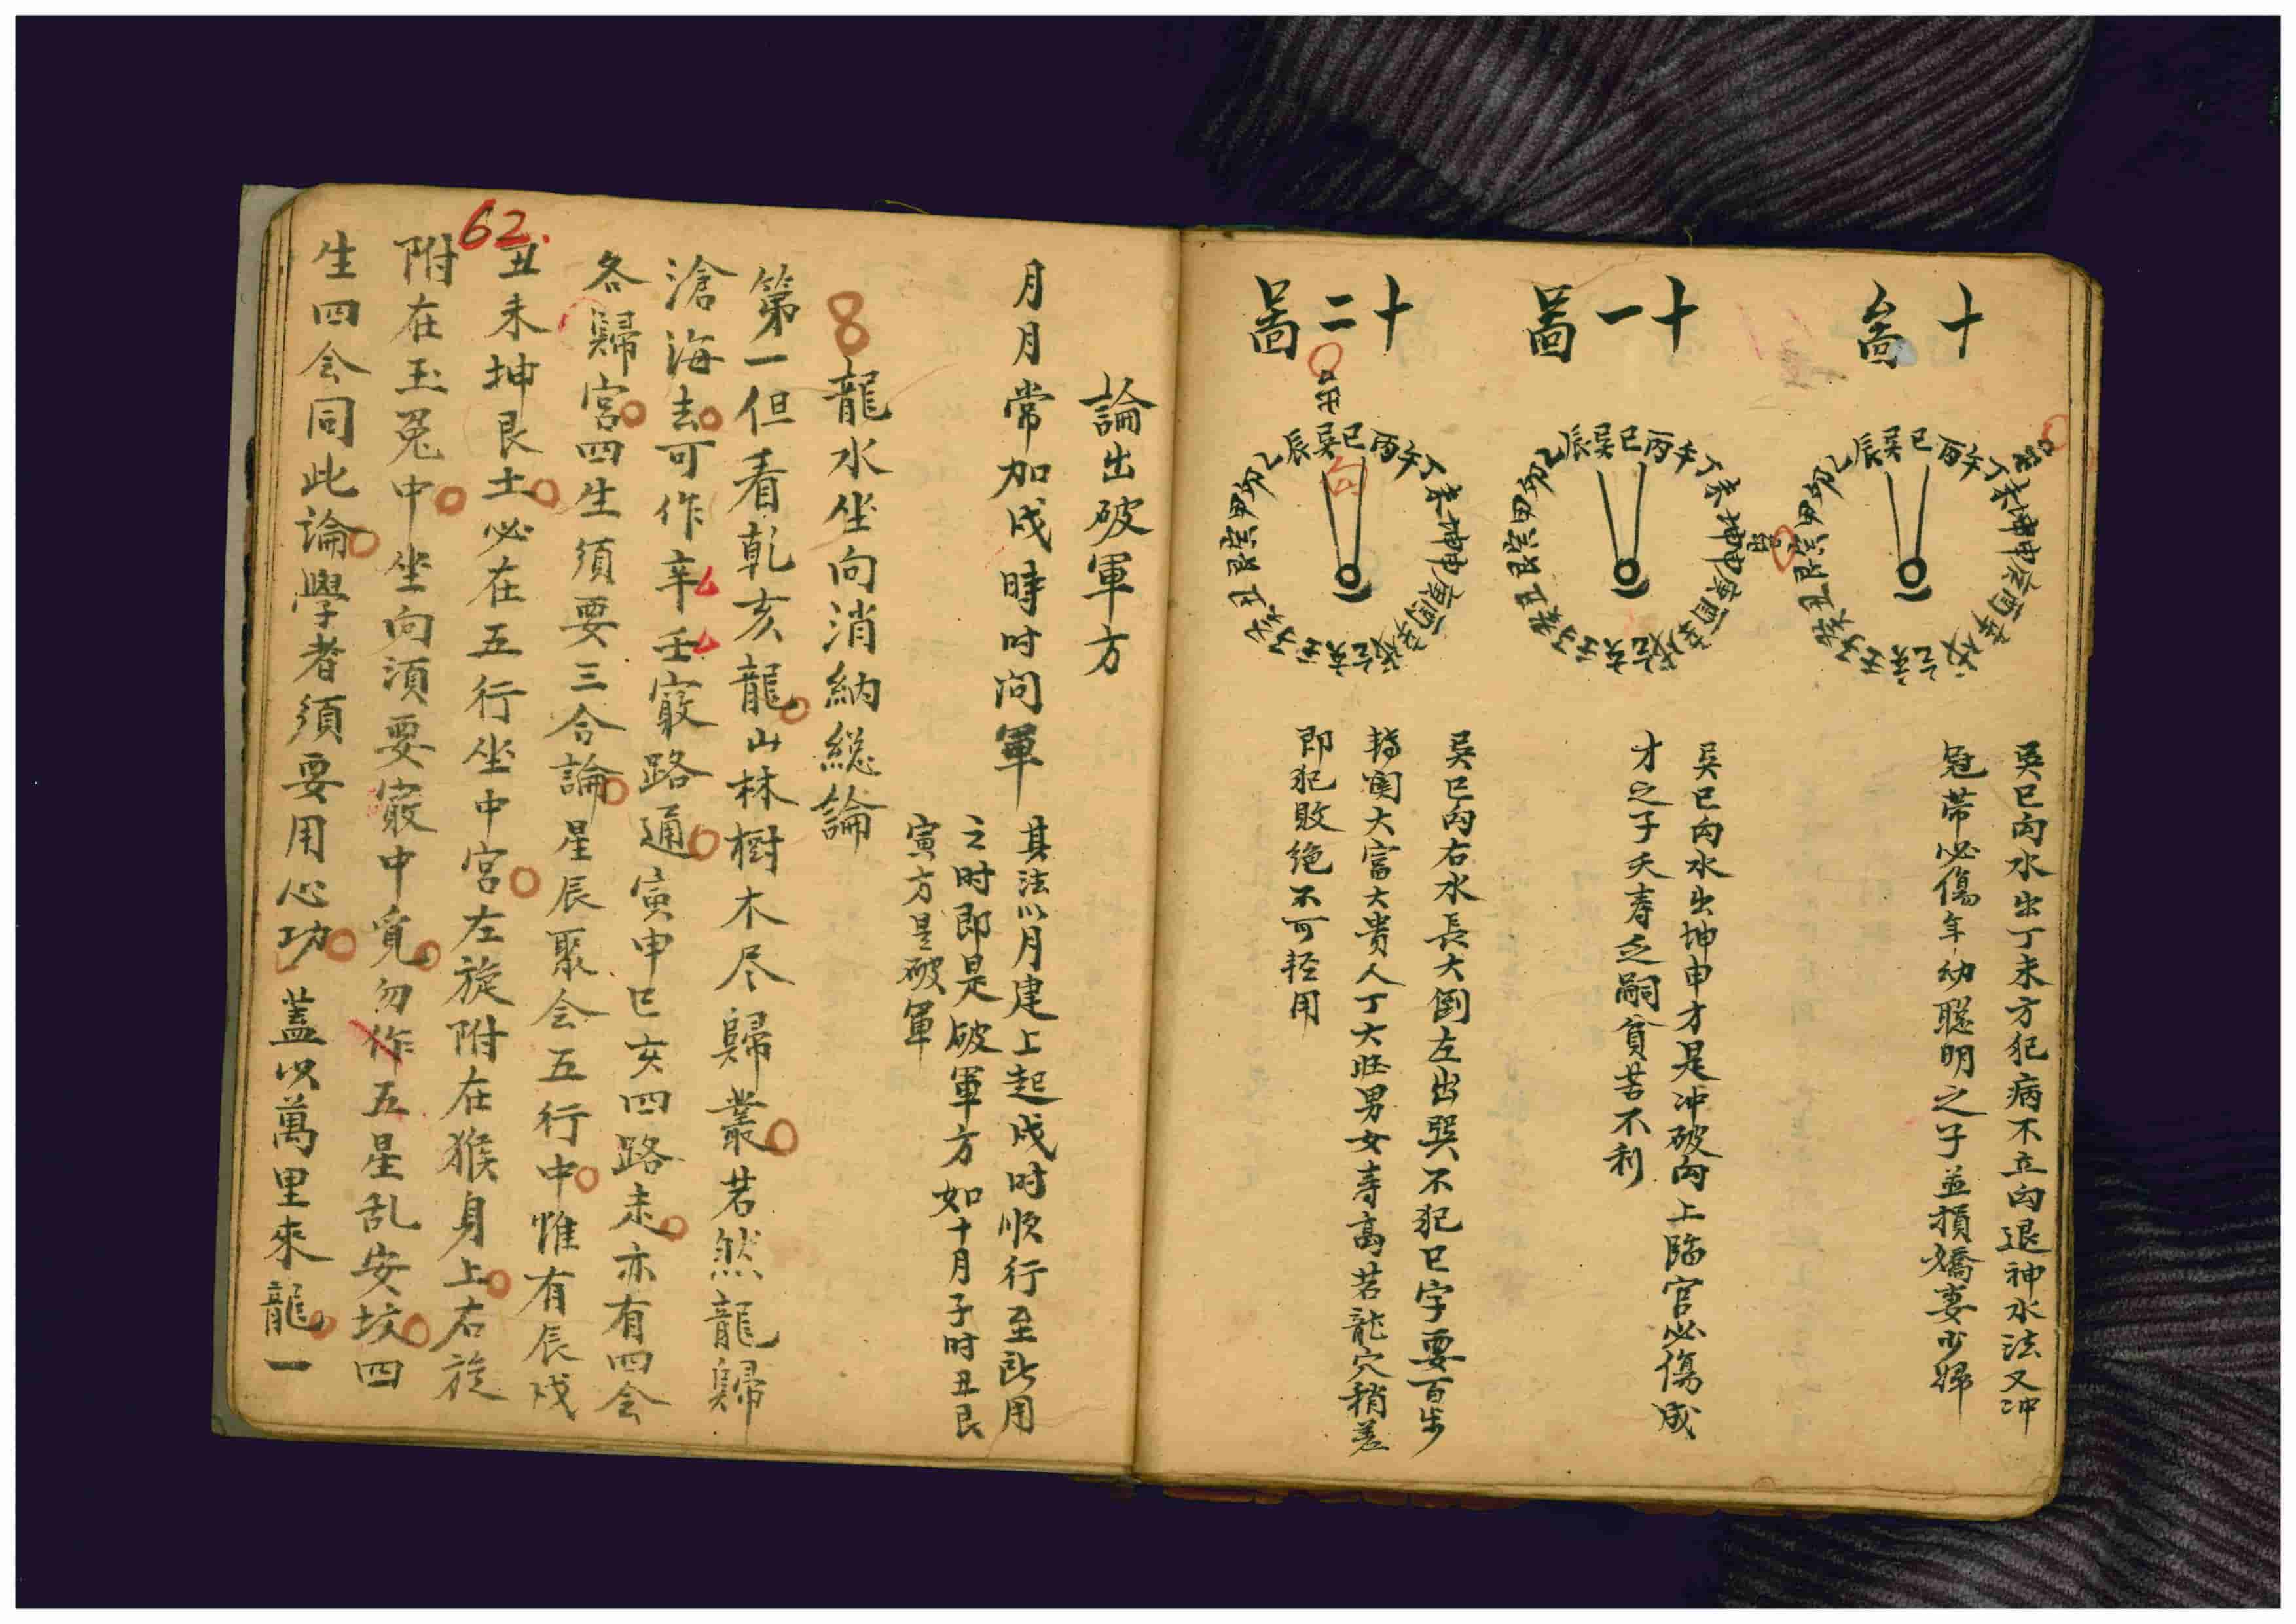 十圖
巽巳向水出丁未方犯病不立向退神水法又冲
冠带必傷年幼聰明之子並損嬌妻少婦
十一圖
巽巳向水出坤申才是冲破向上臨官必傷成
才之子夭寿乏嗣貧苦不利
十二圖
巽巳向右水長大倒左出巽不犯巳字要百步
轉闌大富大贵人丁大旺男女寿高若龍穴稍差
即犯敗绝不可轻用
論出破軍方
月月常加戌時时问軍
其法以月建上起戌时顺行至所用
之时即是破軍方如十月子时丑艮
寅方是破軍
8 龍水坐向消納総論
第一但看乾亥龍山林樹木尽歸叢若然龍歸
滄海去可作辛壬竅路通寅申巳亥四路来亦有四会
各歸宮四生須要三合論星辰聚会五行中惟有辰戌
62.
丑未坤艮土必在五行坐中宮左旋附在猴身上右旋
附在玉兔中坐向須要竅中覓勿作五星乱安坟四
生四会同此論學者須要用心功蓋以萬里來龍一